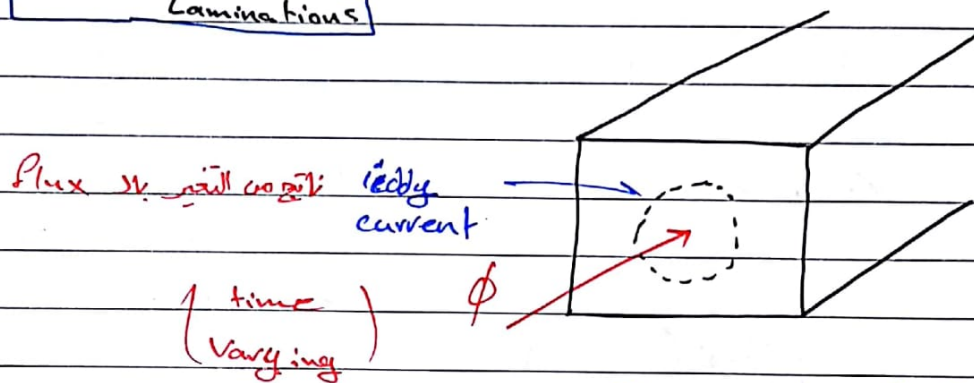 Laminations
ieddy ناتج من التغير بالـ flux
current
ϕ
(time
varying)